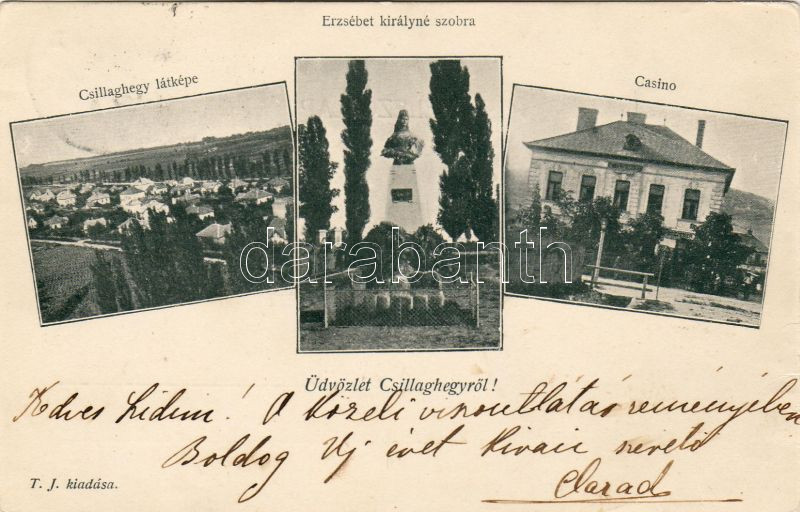 Erzsébet királyné szobra
Csillaghegy látképe
Casino
darabanth
Üdvözlet Csillaghegyről!
Kedves Lidim! A közeli viszontlátás reményében
Boldog Uj évet kiván szerető
Clarad
T. J. kiadása.